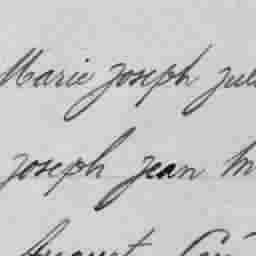 Marie joseph jul
joseph jean m
August